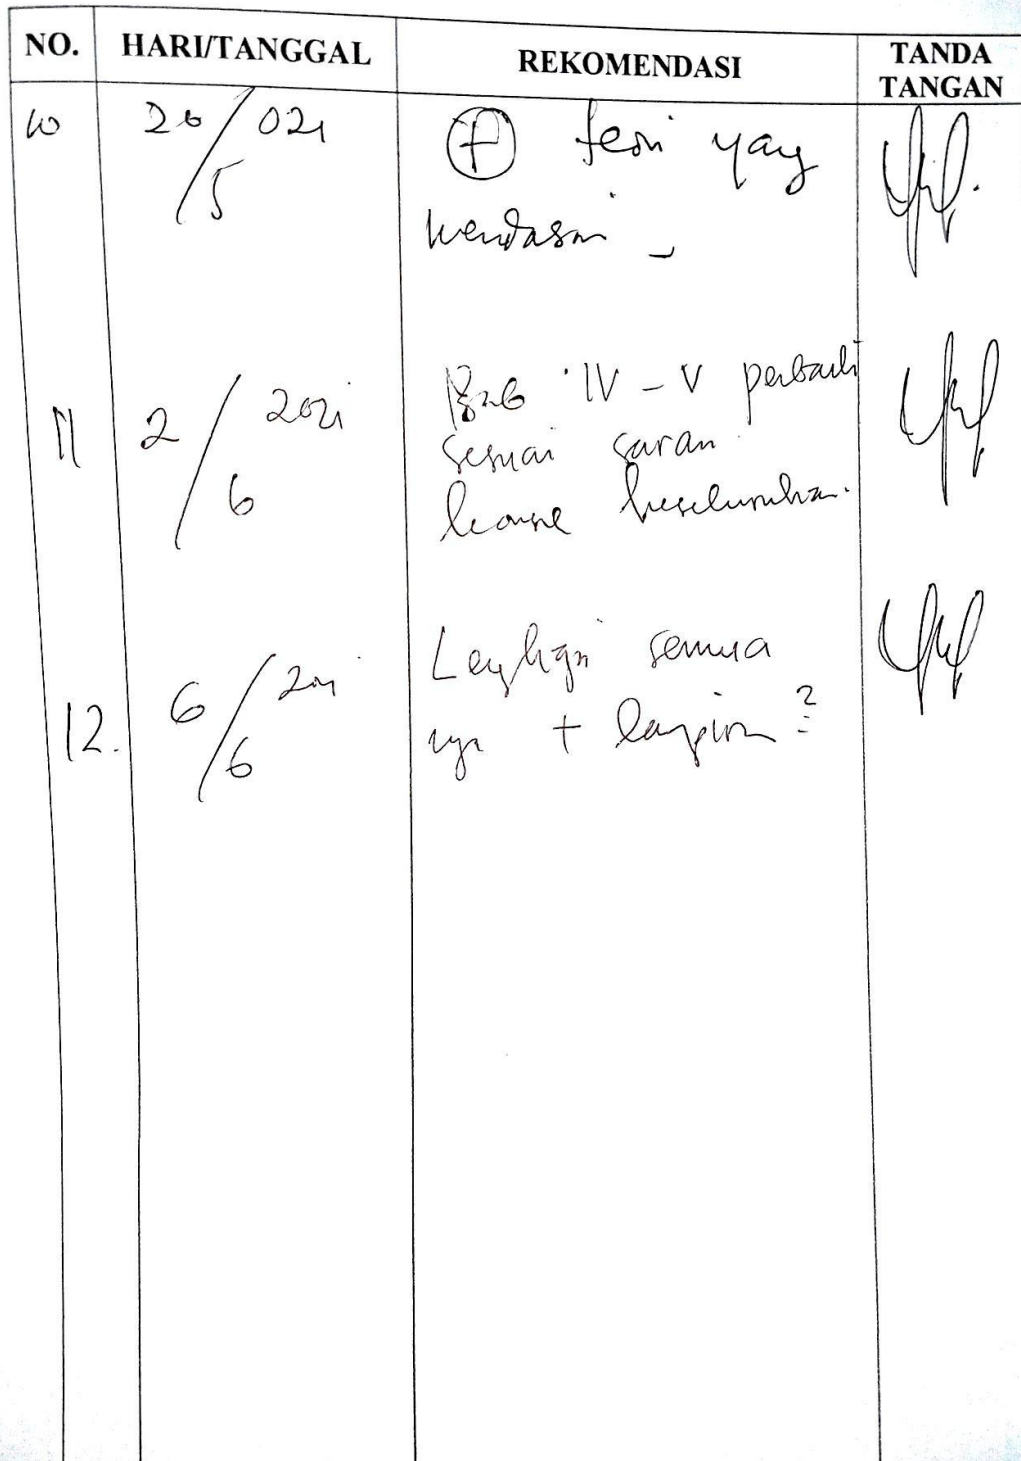 NO. HARI/TANGGAL REKOMENDASI TANDA TANGAN
10 20/5 021 + teori yang
mendasari
11 2/6 2021 Bab IV - V perbaiki
sesuai saran
keseluruhan.
12. 6/6 2021 Lengkapi semua
nya + lampiran